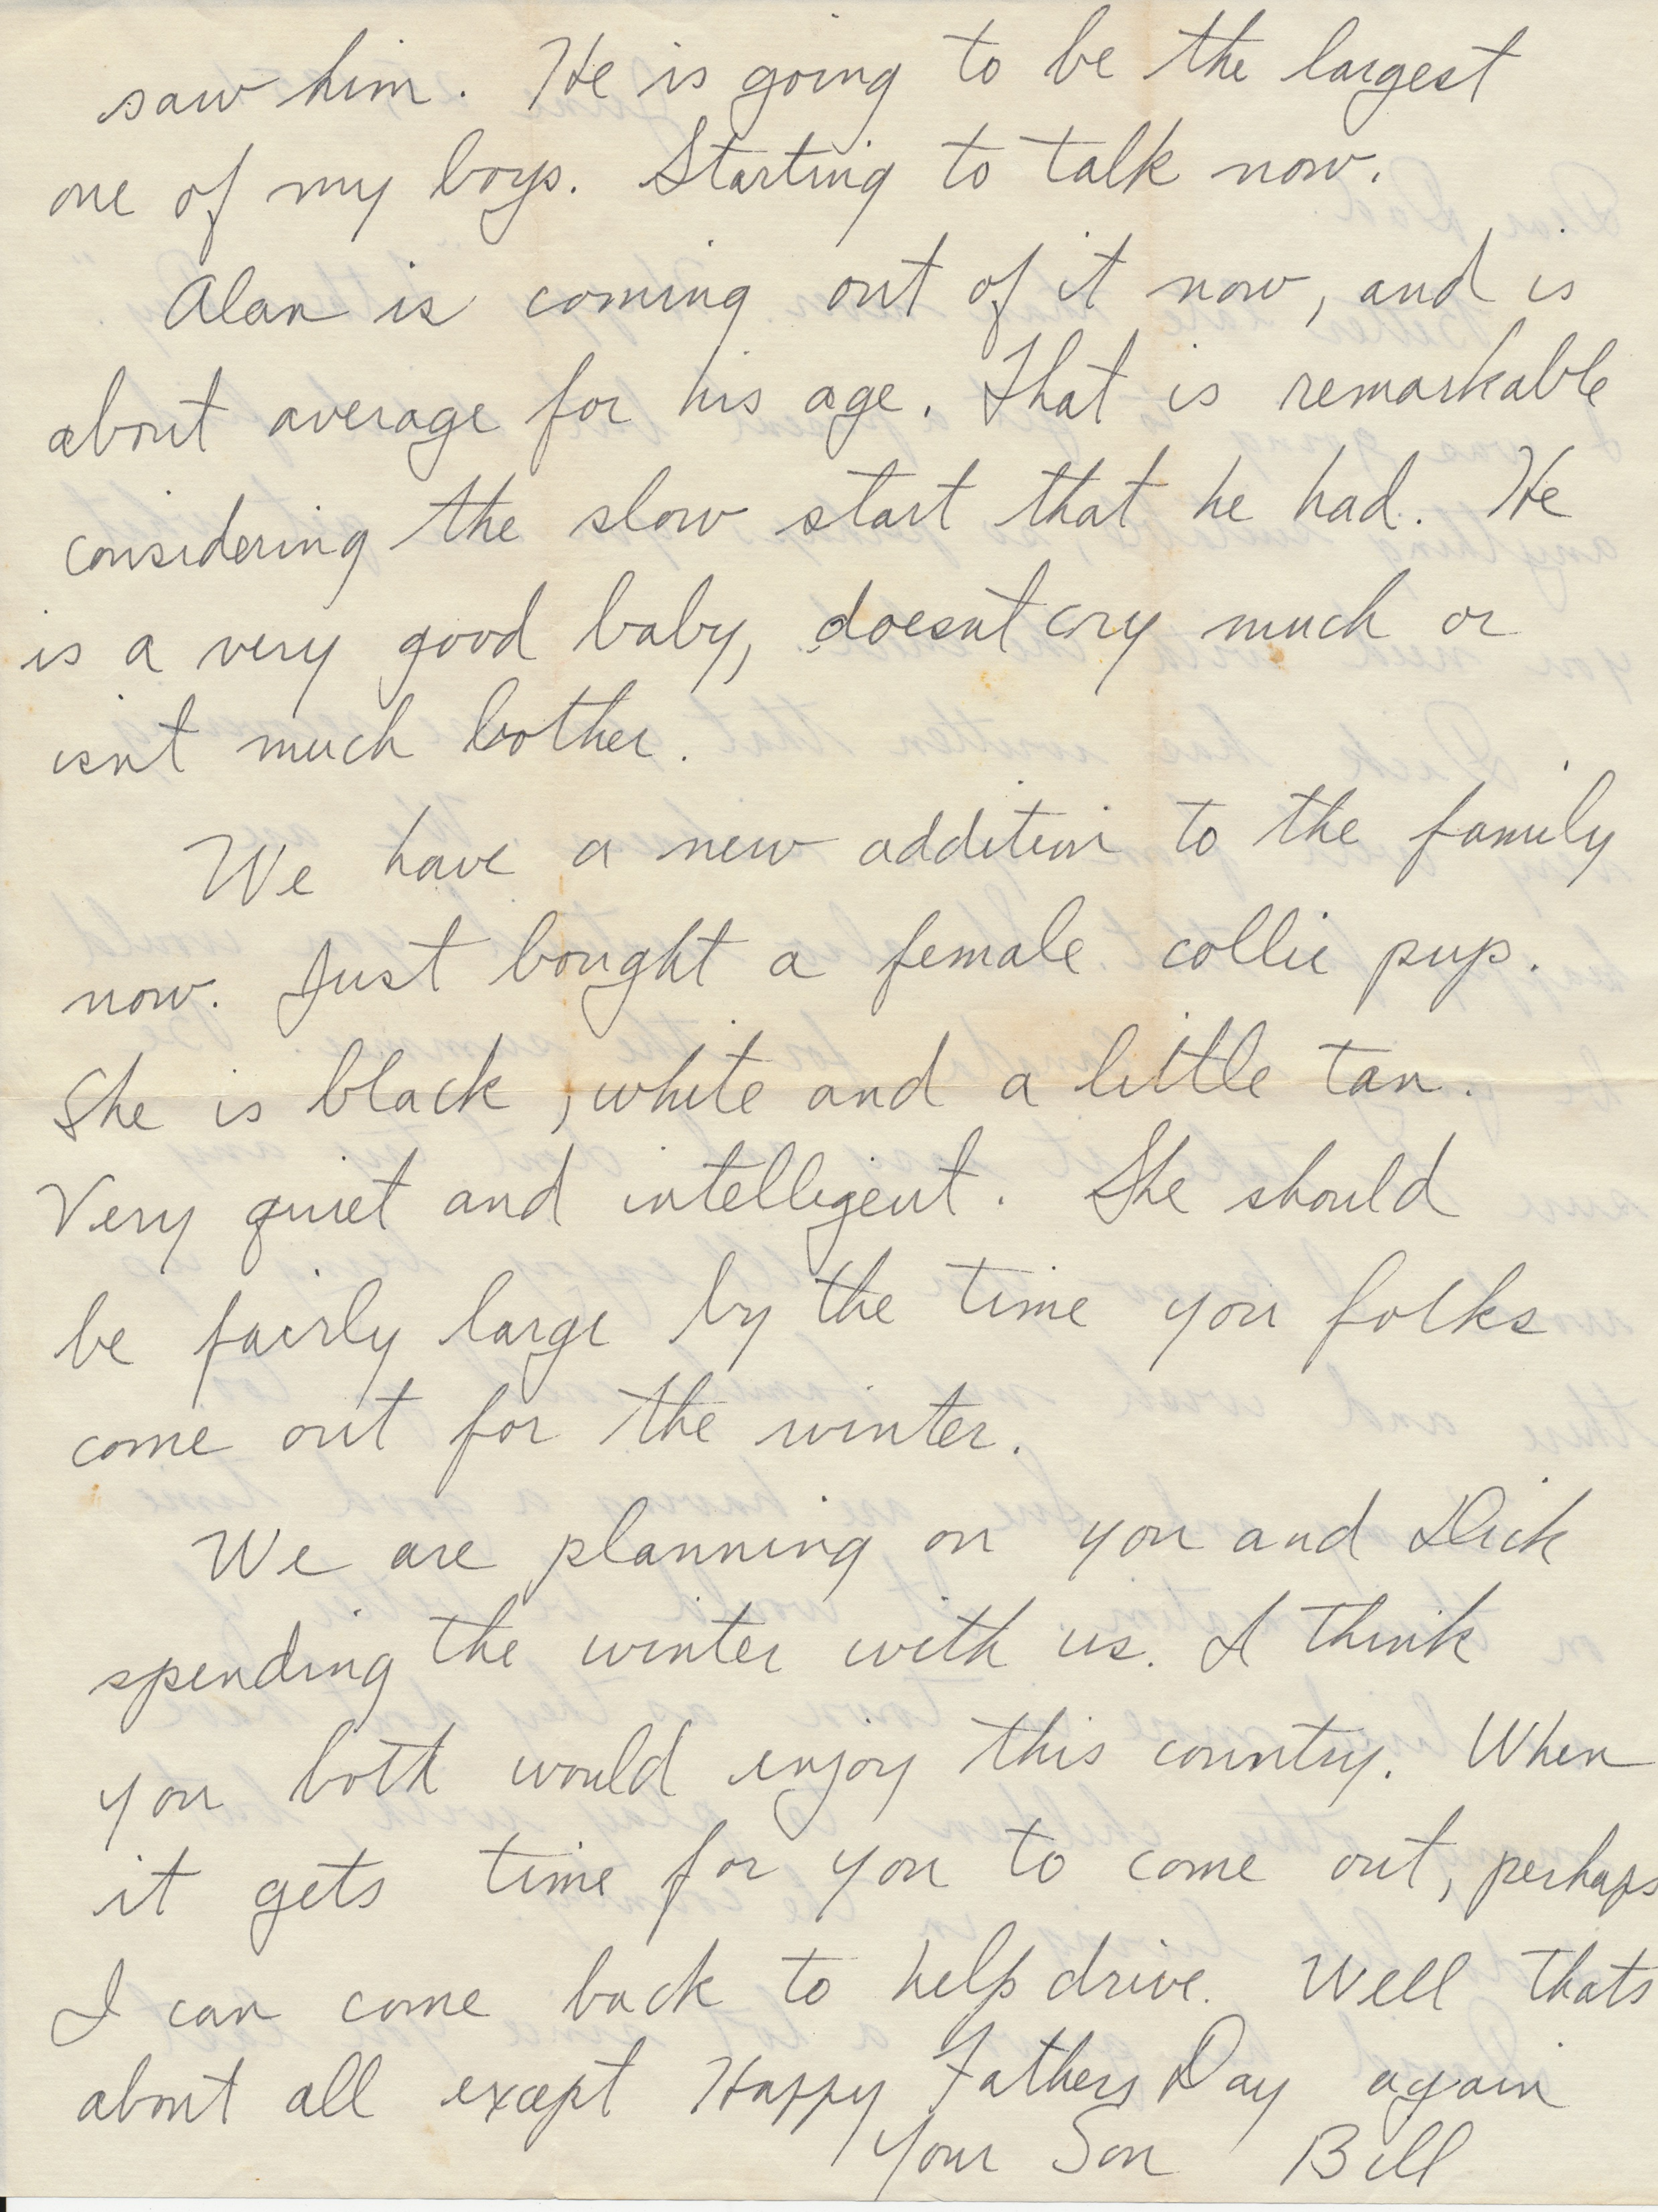 saw him. He is going to be the largest
one of my boys. Starting to talk now.
Alan is coming out of it now, and is
about average for his age. That is remarkable
considering the slow start that he had. He
is a very good baby, doesnt cry much or
isnt much bother.
We have a new addition to the family
now. Just bought a female collie pup.
She is black, white and a little tan.
Very quiet and intelligent. She should
be fairly large by the time you folks
come out for the winter.
We are planning on you and Dick
spending the winter with us. I think
you both would enjoy this country. When
it gets time for you to come out, perhaps
I can come back to help drive. Well thats
about all except Happy Fathers Day again
Your Son Bill